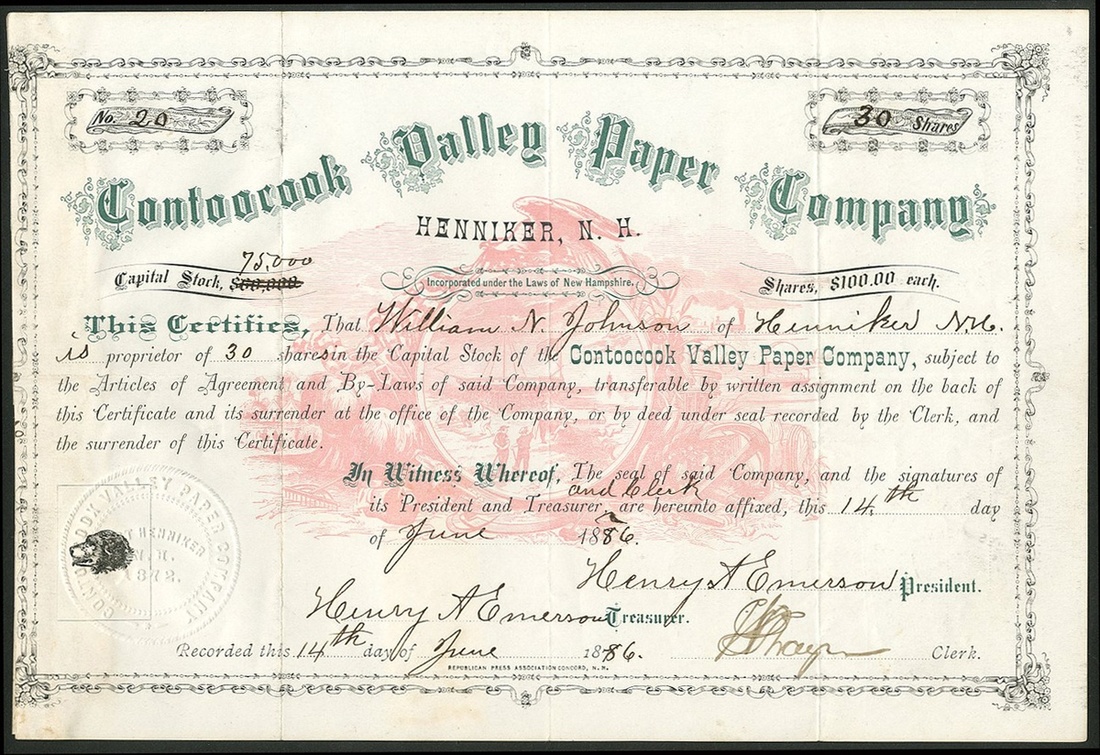 No. 20
30 Shares
Contoocook Valley Paper Company
HENNIKER, N. H.
75,000
Capital Stock, $60,000
Incorporated under the Laws of New Hampshire.
Shares, $100.00 each.
This Certifies, That William N. Johnson of Henniker N.H.
is proprietor of 30 shares in the Capital Stock of the Contoocook Valley Paper Company, subject to
the Articles of Agreement and By-Laws of said Company, transferable by written assignment on the back of
this Certificate and its surrender at the office of the Company, or by deed under seal recorded by the Clerk, and
the surrender of this Certificate.
In Witness Whereof, The seal of said Company, and the signatures of
and Clerk
its President and Treasurer, are hereunto affixed, this 14th day
of June 1886.
CONTOOCOOK VALLEY PAPER COMPANY
AT HENNIKER
N. H.
1872.
Henry A Emerson President.
Henry A Emerson Treasurer.
Recorded this 14th day of June 1886.
Clerk.
REPUBLICAN PRESS ASSOCIATION CONCORD, N. H.